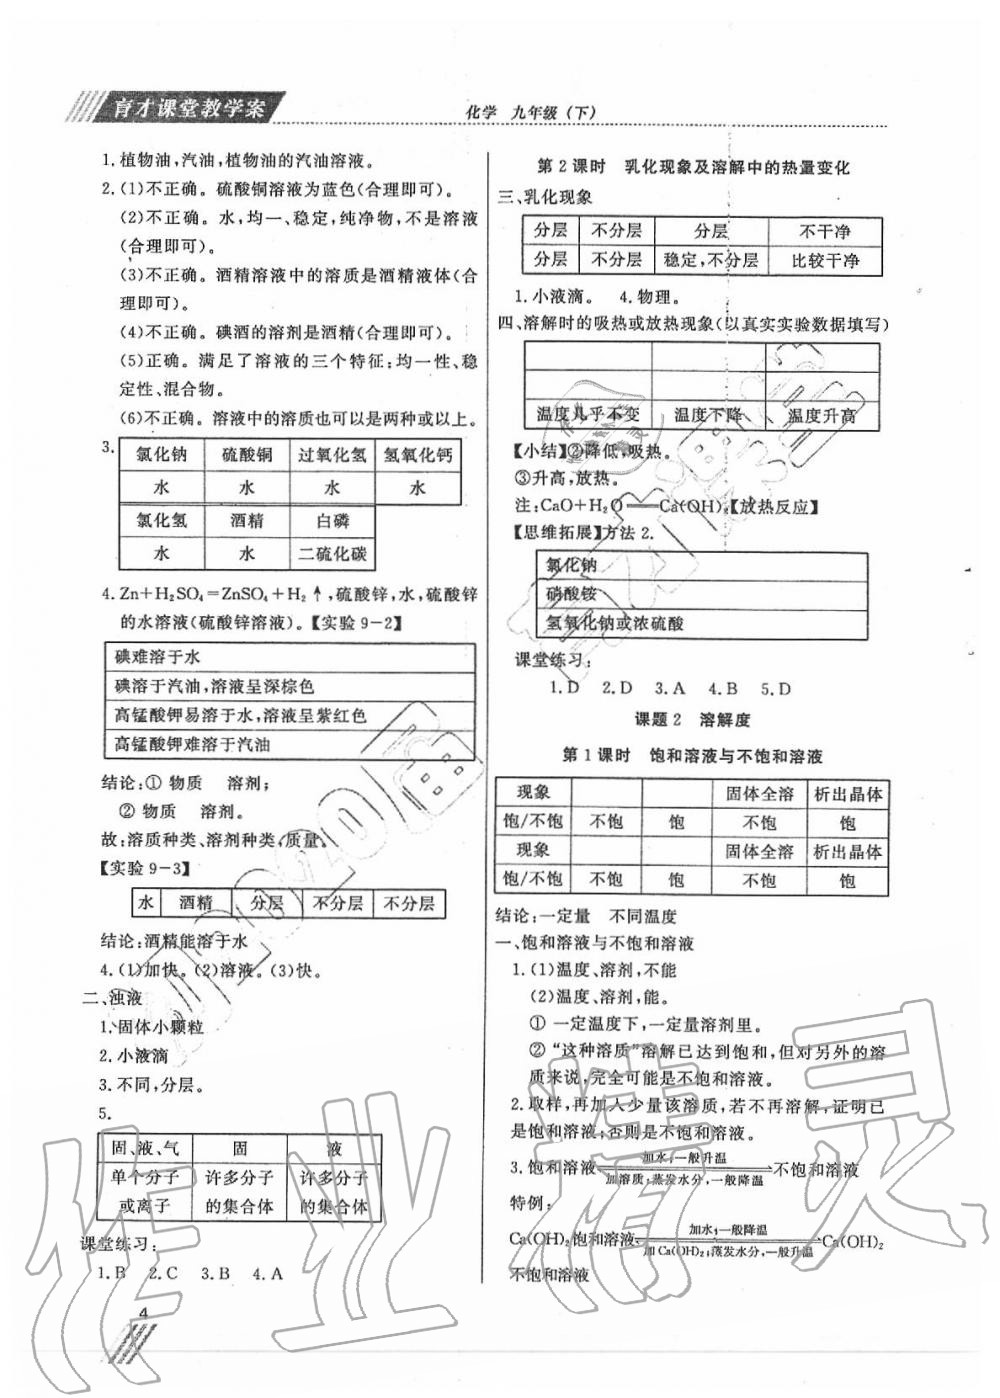 育才课堂教学案
化学 九年级(下)
1.植物油,汽油,植物油的汽油溶液。
2.(1)不正确。硫酸铜溶液为蓝色(合理即可)。
(2)不正确。水,均一、稳定,纯净物,不是溶液
(合理即可)。
(3)不正确。酒精溶液中的溶质是酒精液体(合
理即可)。
(4)不正确。碘酒的溶剂是酒精(合理即可)。
(5)正确。满足了溶液的三个特征:均一性、稳
定性、混合物。
(6)不正确。溶液中的溶质也可以是两种或以上。
3.
氯化钠 硫酸铜 过氧化氢 氢氧化钙
水 水 水 水
氯化氢 酒精 白磷
水 水 二硫化碳
4. Zn+H₂SO₄=ZnSO₄+H₂↑,硫酸锌,水,硫酸锌
的水溶液(硫酸锌溶液)。【实验9-2】
碘难溶于水
碘溶于汽油,溶液呈深棕色
高锰酸钾易溶于水,溶液呈紫红色
高锰酸钾难溶于汽油
结论:① 物质 溶剂;
② 物质 溶剂。
故:溶质种类、溶剂种类、质量。
【实验9-3】
水 酒精 分层 不分层 不分层
结论:酒精能溶于水
4.(1)加快。(2)溶液。(3)快。
二、浊液
1.固体小颗粒
2.小液滴
3.不同,分层。
5.
固、液、气 固 液
单个分子 许多分子 许多分子
或离子 的集合体 的集合体
课堂练习:
1.B 2.C 3.B 4.A
4
第2课时 乳化现象及溶解中的热量变化
三、乳化现象
分层 不分层 分层 不干净
分层 不分层 稳定,不分层 比较干净
1.小液滴。 4.物理。
四、溶解时的吸热或放热现象(以真实实验数据填写)
温度几乎不变 温度下降 温度升高
【小结】②降低,吸热。
③升高,放热。
注:CaO+H₂O══Ca(OH)₂【放热反应】
【思维拓展】方法2.
氯化钠
硝酸铵
氢氧化钠或浓硫酸
课堂练习:
1.D 2.D 3.A 4.B 5.D
课题2 溶解度
第1课时 饱和溶液与不饱和溶液
现象 固体全溶 析出晶体
饱/不饱 不饱 饱 不饱 饱
现象 固体全溶 析出晶体
饱/不饱 不饱 饱 不饱 饱
结论:一定量 不同温度
一、饱和溶液与不饱和溶液
1.(1)温度、溶剂,不能
(2)温度、溶剂,能。
① 一定温度下,一定量溶剂里。
② “这种溶质”溶解已达到饱和,但对另外的溶
质来说,完全可能是不饱和溶液。
2.取样,再加入少量该溶质,若不再溶解,证明已
是饱和溶液;否则是不饱和溶液。
加水,一般升温
3.饱和溶液 不饱和溶液
加溶质;蒸发水分,一般降温
特例:
加水;一般降温
Ca(OH)₂饱和溶液 Ca(OH)₂
加Ca(OH)₂;蒸发水分,一般升温
不饱和溶液
作业精灵